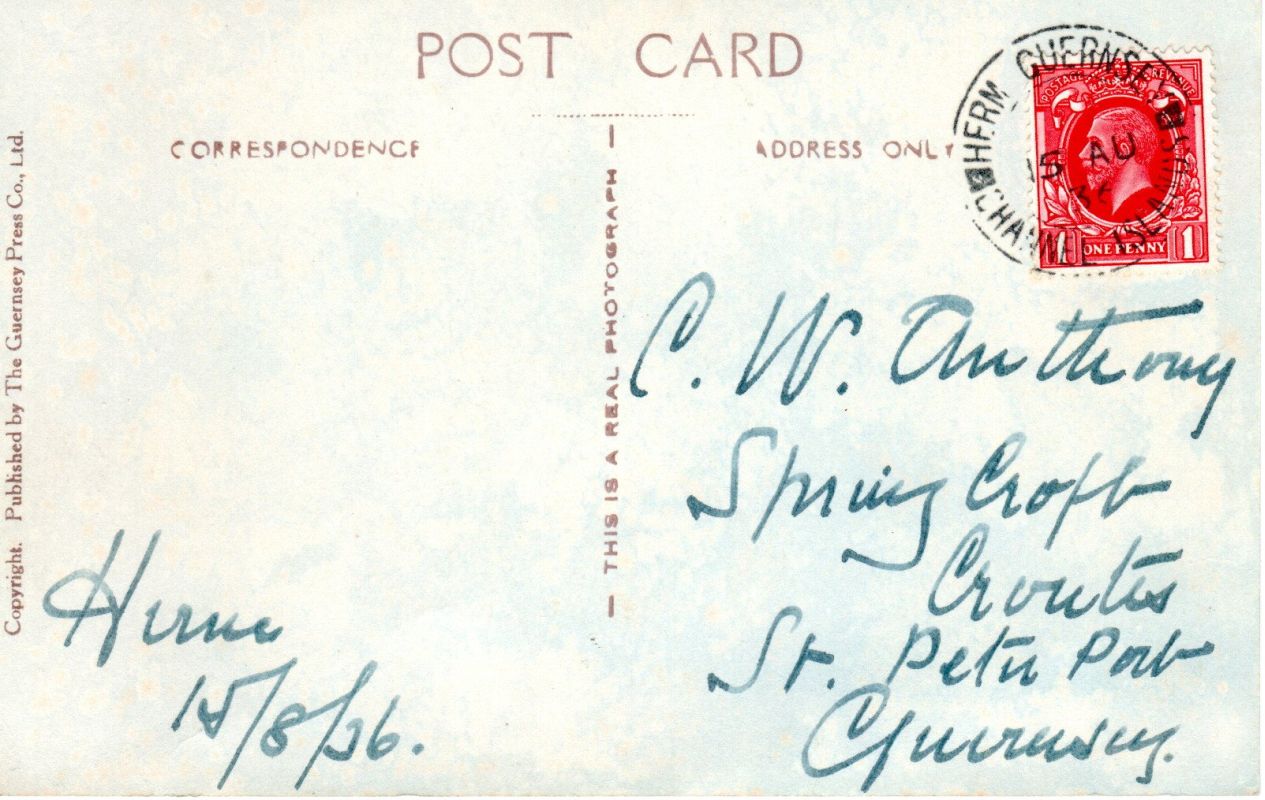 POST CARD
CORRESPONDENCE
ADDRESS ONLY
THIS IS A REAL PHOTOGRAPH
Copyright. Published by The Guernsey Press Co., Ltd.
HERM GUERNSEY
15 AU
36
CHANNEL ISLANDS
POSTAGE REVENUE
1 ONE PENNY 1
C. W. Anthony
Spring Croft
Croutes
St. Peter Port
Guernsey.
Herm
15/8/36.